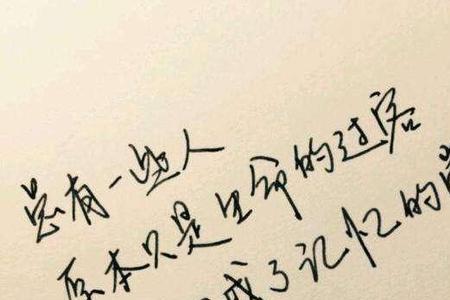 总有一些人
原本只是生命的过客
成了记忆的常